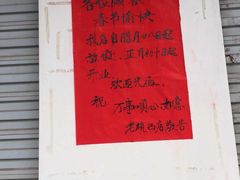 各位顾客
春节愉快
我店自腊月廿八日起
放假，正月初十日起
开业
欢迎光临
祝 万事顺心如意
敬告